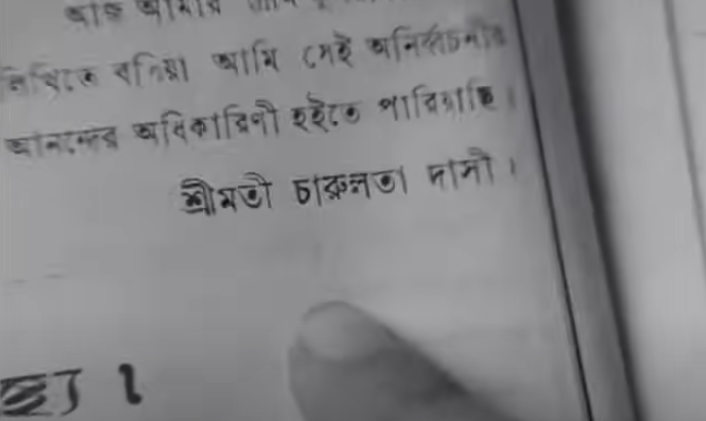 আজ আমার
লিখিতে বসিয়া আমি সেই অনির্ব্বচনীয়
আনন্দের অধিকারিণী হইতে পারিয়াছি।
শ্রীমতী চারুলতা দাসী।